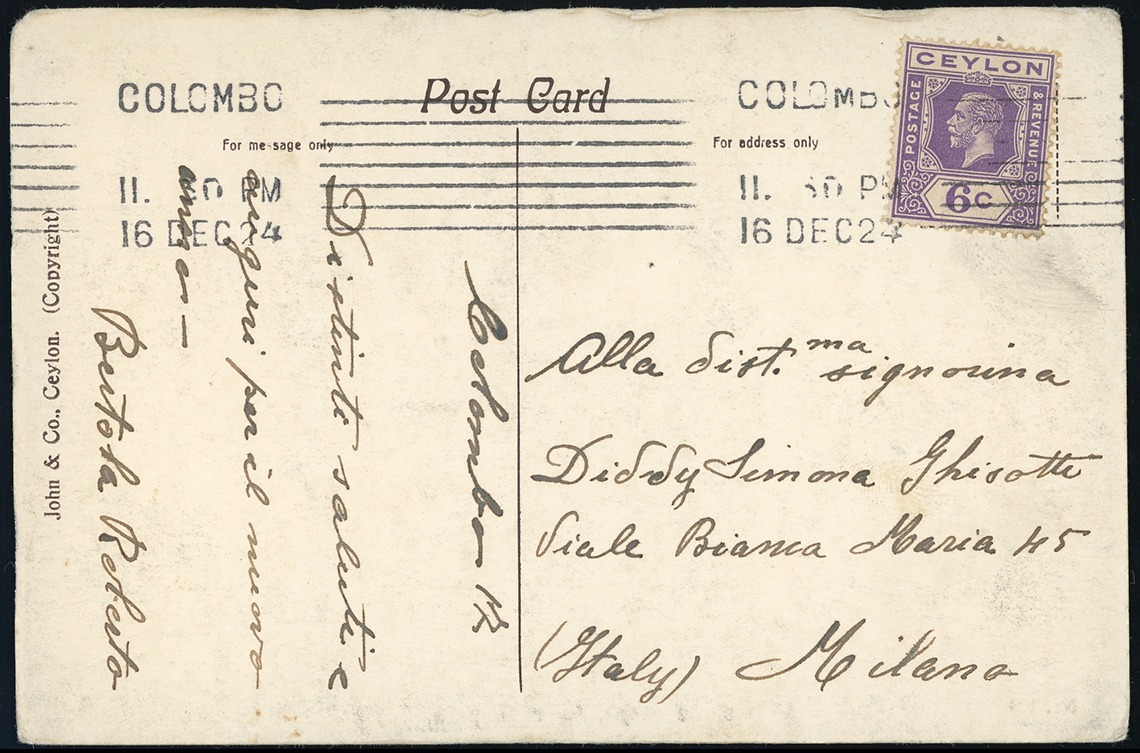 COLOMBO
Post Card
COLOMBO
CEYLON
POSTAGE
& REVENUE
6c
For message only
For address only
11. 30 PM
16 DEC 24
11. 30 PM
16 DEC 24
John & Co., Ceylon. (Copyright)
Colombo
Distinti saluti e
auguri per il nuovo
anno —
Bertola Roberto
Alla dist.ma signorina
Diddy Simona Ghisotti
Viale Bianca Maria 45
(Italy) Milano